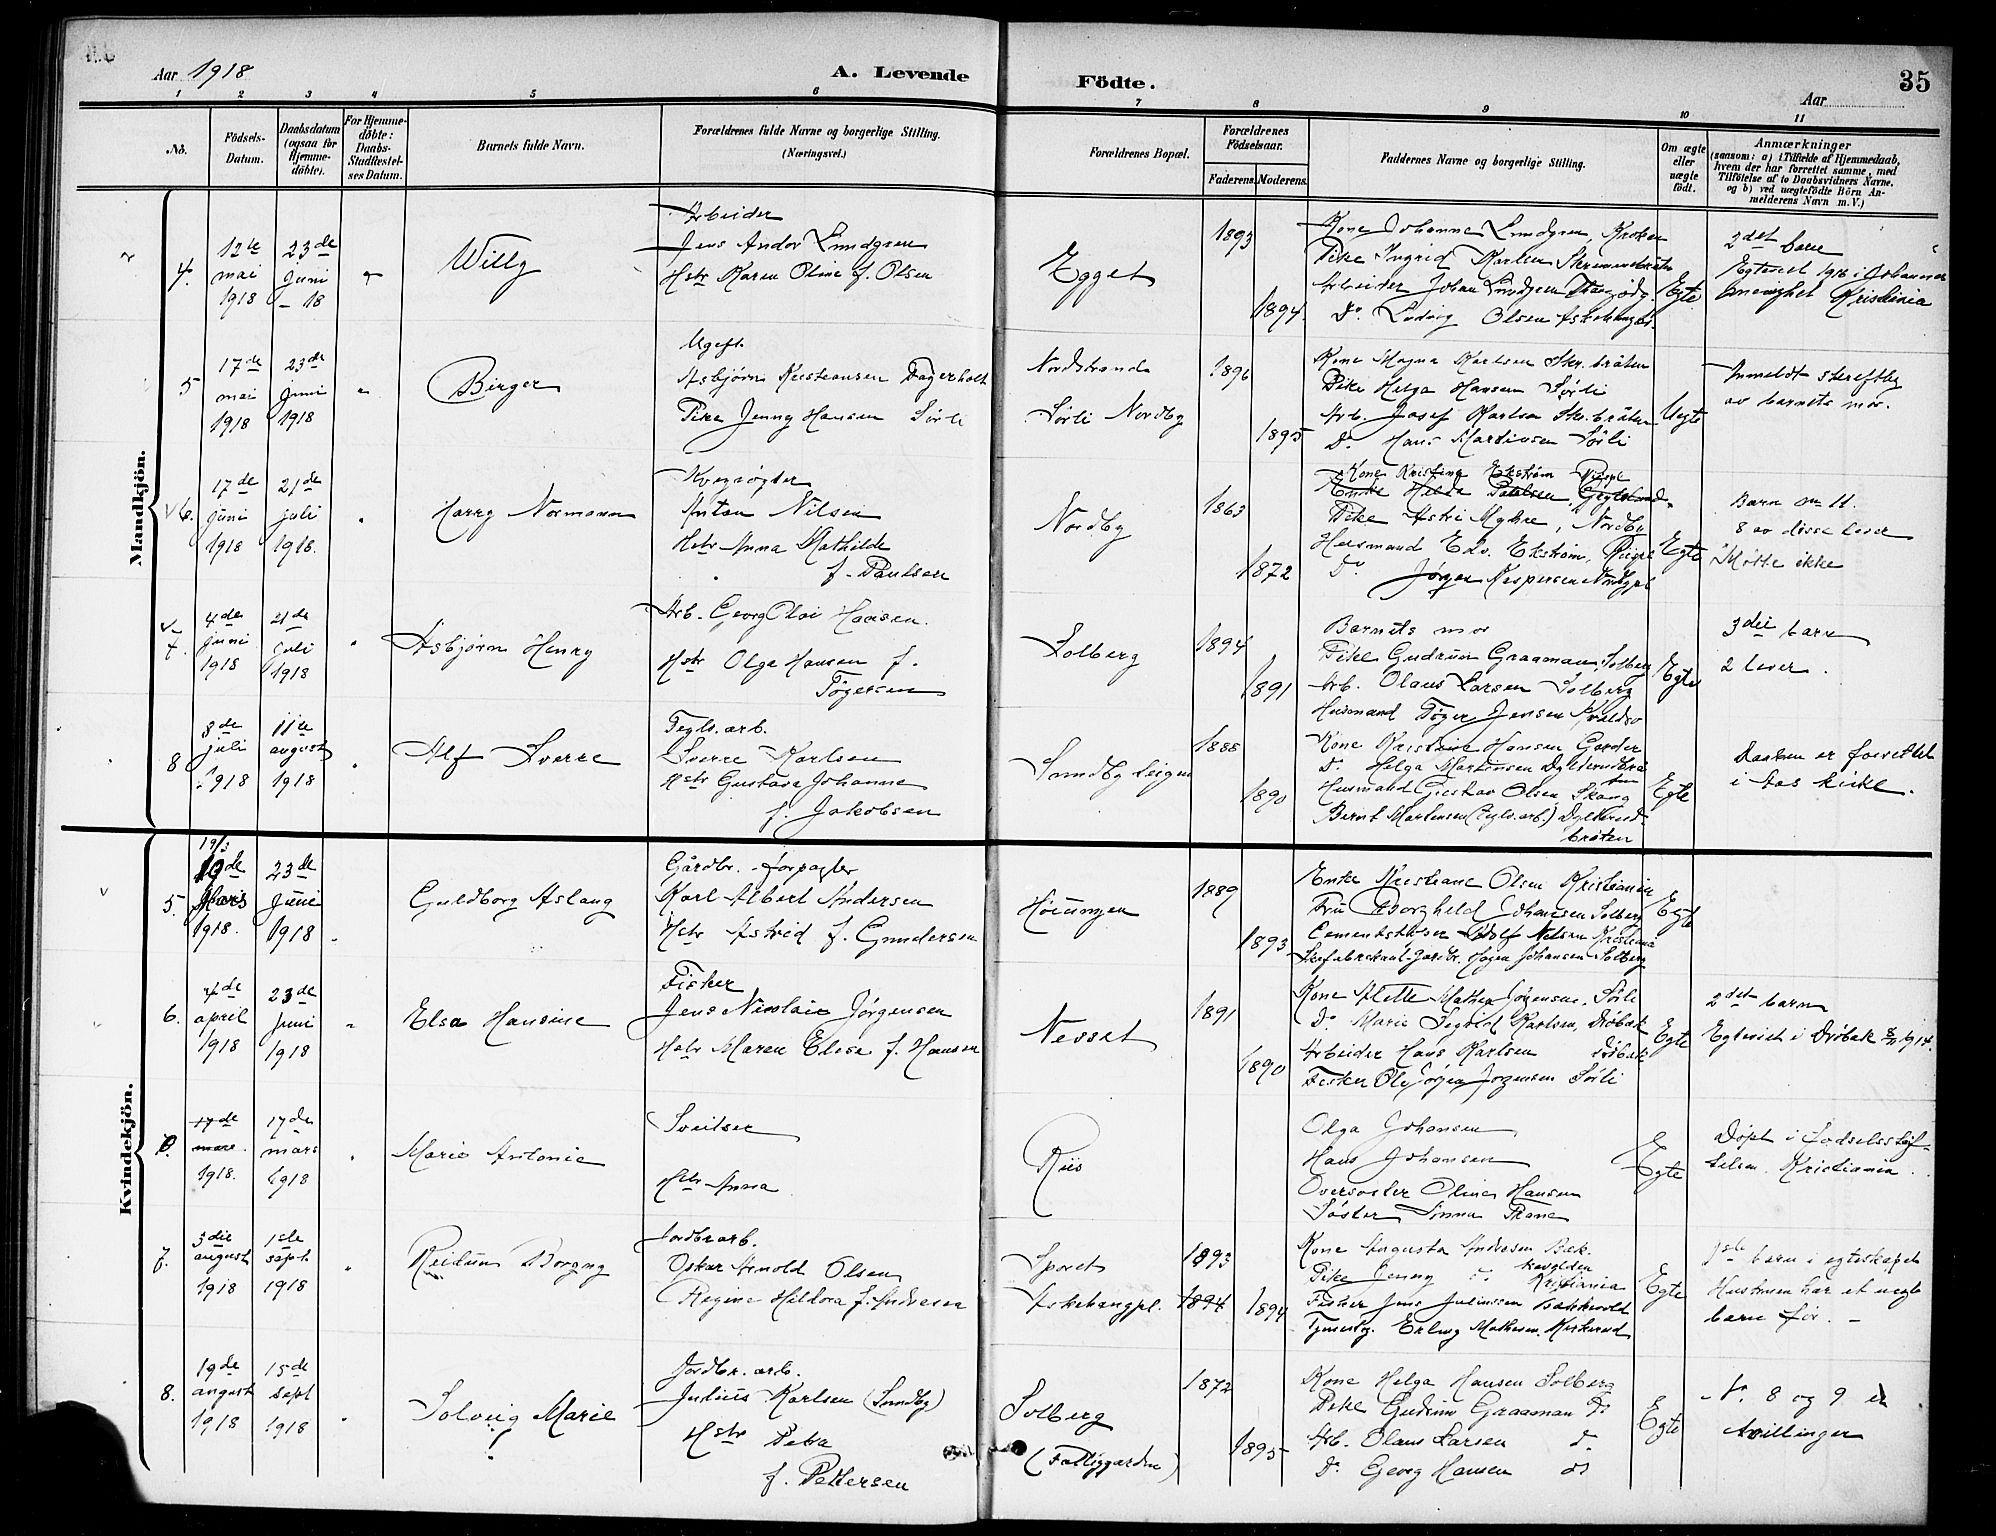 Aar 1918
A. Levende
Födte.
35
Aar
1 2 3 4 5 6 7 8 9 10 11
No.
Födsels-Datum.
Daabsdatum (ogsaa for Hjemme-döbte).
For Hjemme-döbte: Daabs-Stadfæstel-ses Datum.
Barnets fulde Navn.
Forældrenes fulde Navne og borgerlige Stilling. (Næringsvei.)
Forældrenes Bopæl.
Forældrenes Födselsaar.
Faderens. Moderens.
Faddernes Navne og borgerlige Stilling.
Om ægte eller uægte födt.
Anmærkninger
(saasom: a) i Tilfælde af Hjemmedaab, hvem der har forrettet samme, med Tilföielse af to Daabsvidners Navne, og b) ved uægtefödte Börn An-melderens Navn m. V.)
Mandkjön.
4.
12te mai 1918
23de juni - 18
Willy
Arbeider
Jens Andor Lundgren
Hstr Karen Oline f. Olsen
Egget
1893
1894.
Kone Johanne Lundgren, Kroken
Pike Ingrid Karlsen
Arbeider Johan Lundgren
Do. Ludvig Olsen
Egte
2det barn
Egteviet 1916 i Johannes menighet Kristiania
5
17de mai 1918
23de juni 1918
Birger
Ugift
Asbjørn Kristiansen Fagerholt
Pike Jenny Hansen Sørli
Nordstrand
Sørli Nordby
1896
1895
Kone Magna Karlsen Skr.bråten
Pike Helga Hansen Sørli
Arb. Josef Karlsen Skr.bråten
Do. Hans Martinsen Sørli
Uegte
Anmeldt skriftlig
av barnets mor.
6.
17de juni 1918
21de juli 1918.
Harry Normann
Kvegrøgter
Anton Nilsen
Hstr Anna Mathilde
f. Paulsen
Nordby
1863
1872
Kone Kristine Ekstrøm
Pike Astri Myhre, Nordby
Husmand Edv. Ekstrøm,
Do Jørgen Kaspersen
Egte
Barn no 11.
8 av disse lever
Møtte ikke
7.
4de juni 1918
21de juli 1918
Asbjørn Henry
Arb. Georg Olai Hansen.
Hstr Olga Hansen f.
Tøgersen
Solberg
1894
1891
Barnets mor
Pike Gudrun Graaman, Solberg
Arb. Olaus Larsen Solberg
Husmand Tøger Jensen
Egte
3die barn
2 lever.
8
8de juli 1918
11te august 1918
Alf Sverre
Teglv.arb.
Sverre Karlsen
Hstr Gustava Johanne
f. Jakobsen
Sundby
1888
1890
Kone Kristine Hansen Garder
Do. Helga Martinsen
Husmand Gustav Olsen
Bernt Martinsen (Teglv.arb.)
bråten
Egte
Daaben er forrettet
i Aas kirke.
Kvindekjön.
5.
19/3
19de Mars 1918.
23de Juni 1918
Guldborg Aslaug
Gårdbr. forpagter
Karl Albert Andersen
Hstr Astrid f. Gundersen
1889
1893
Enke Kristiane Olsen Kristiania
Fru Borghild Johansen Solberg
Cementstøper Adolf Nilsen Kristiania
Johansen Solberg
Egte
6.
4de april 1918
23de Juni 1918
Elsa Hansine
Fisker
Jens Nicolai Jørgensen
Hstr Maren Elise f. Hansen
Nesset
1891
1890
Kone Alette Mathea Jørgensen, Sørli
Do. Marie Karlsen, Drøbak
Arbeider Hans Karlsen Drøbak
Fisker Ole Jørgen Jørgensen Sørli
Egte
2det barn
Egteviet i Drøbak 1914.
17de mars 1918.
17de mars 1918
Marie Antonie
Sveitser
Hstr Anna
Riis
Olga Johansen
Hans Johansen
Oversøster Oline Hansen
Søster Sinna Thrane
Egte
Døpt i Fødselsstif-
telsen, Kristiania.
7.
3die august 1918
1ste sept 1918
Reidun Borgny
Jordbr.arb.
Oskar Arnold Olsen
Regine Heldora f. Andresen
Sporet
Askehaugpl.
1893
1894
1894
Kone Augusta Andresen Bæk-
kevolden
Pike Jenny do. Kristiania
Fisker Jens Juliussen Bækkevold
Erling Mathisen,
Egte
1ste barn i egteskapet
Hustruen har et uegte
barn før. —
8.
19de august 1918
15de sept 1918
Solveig Marie
Jordbr. arb.
Julius Karlsen (Sundby)
Hstr Petra
f. Pettersen
Solberg
(Fattiggarden)
1872
1895
Kone Helga Hansen Solberg
Pike Gudrun Graaman Do
Arb. Olaus Larsen D.
Do. Georg Hansen do
Egte
No. 8 og 9 er
tvillinger